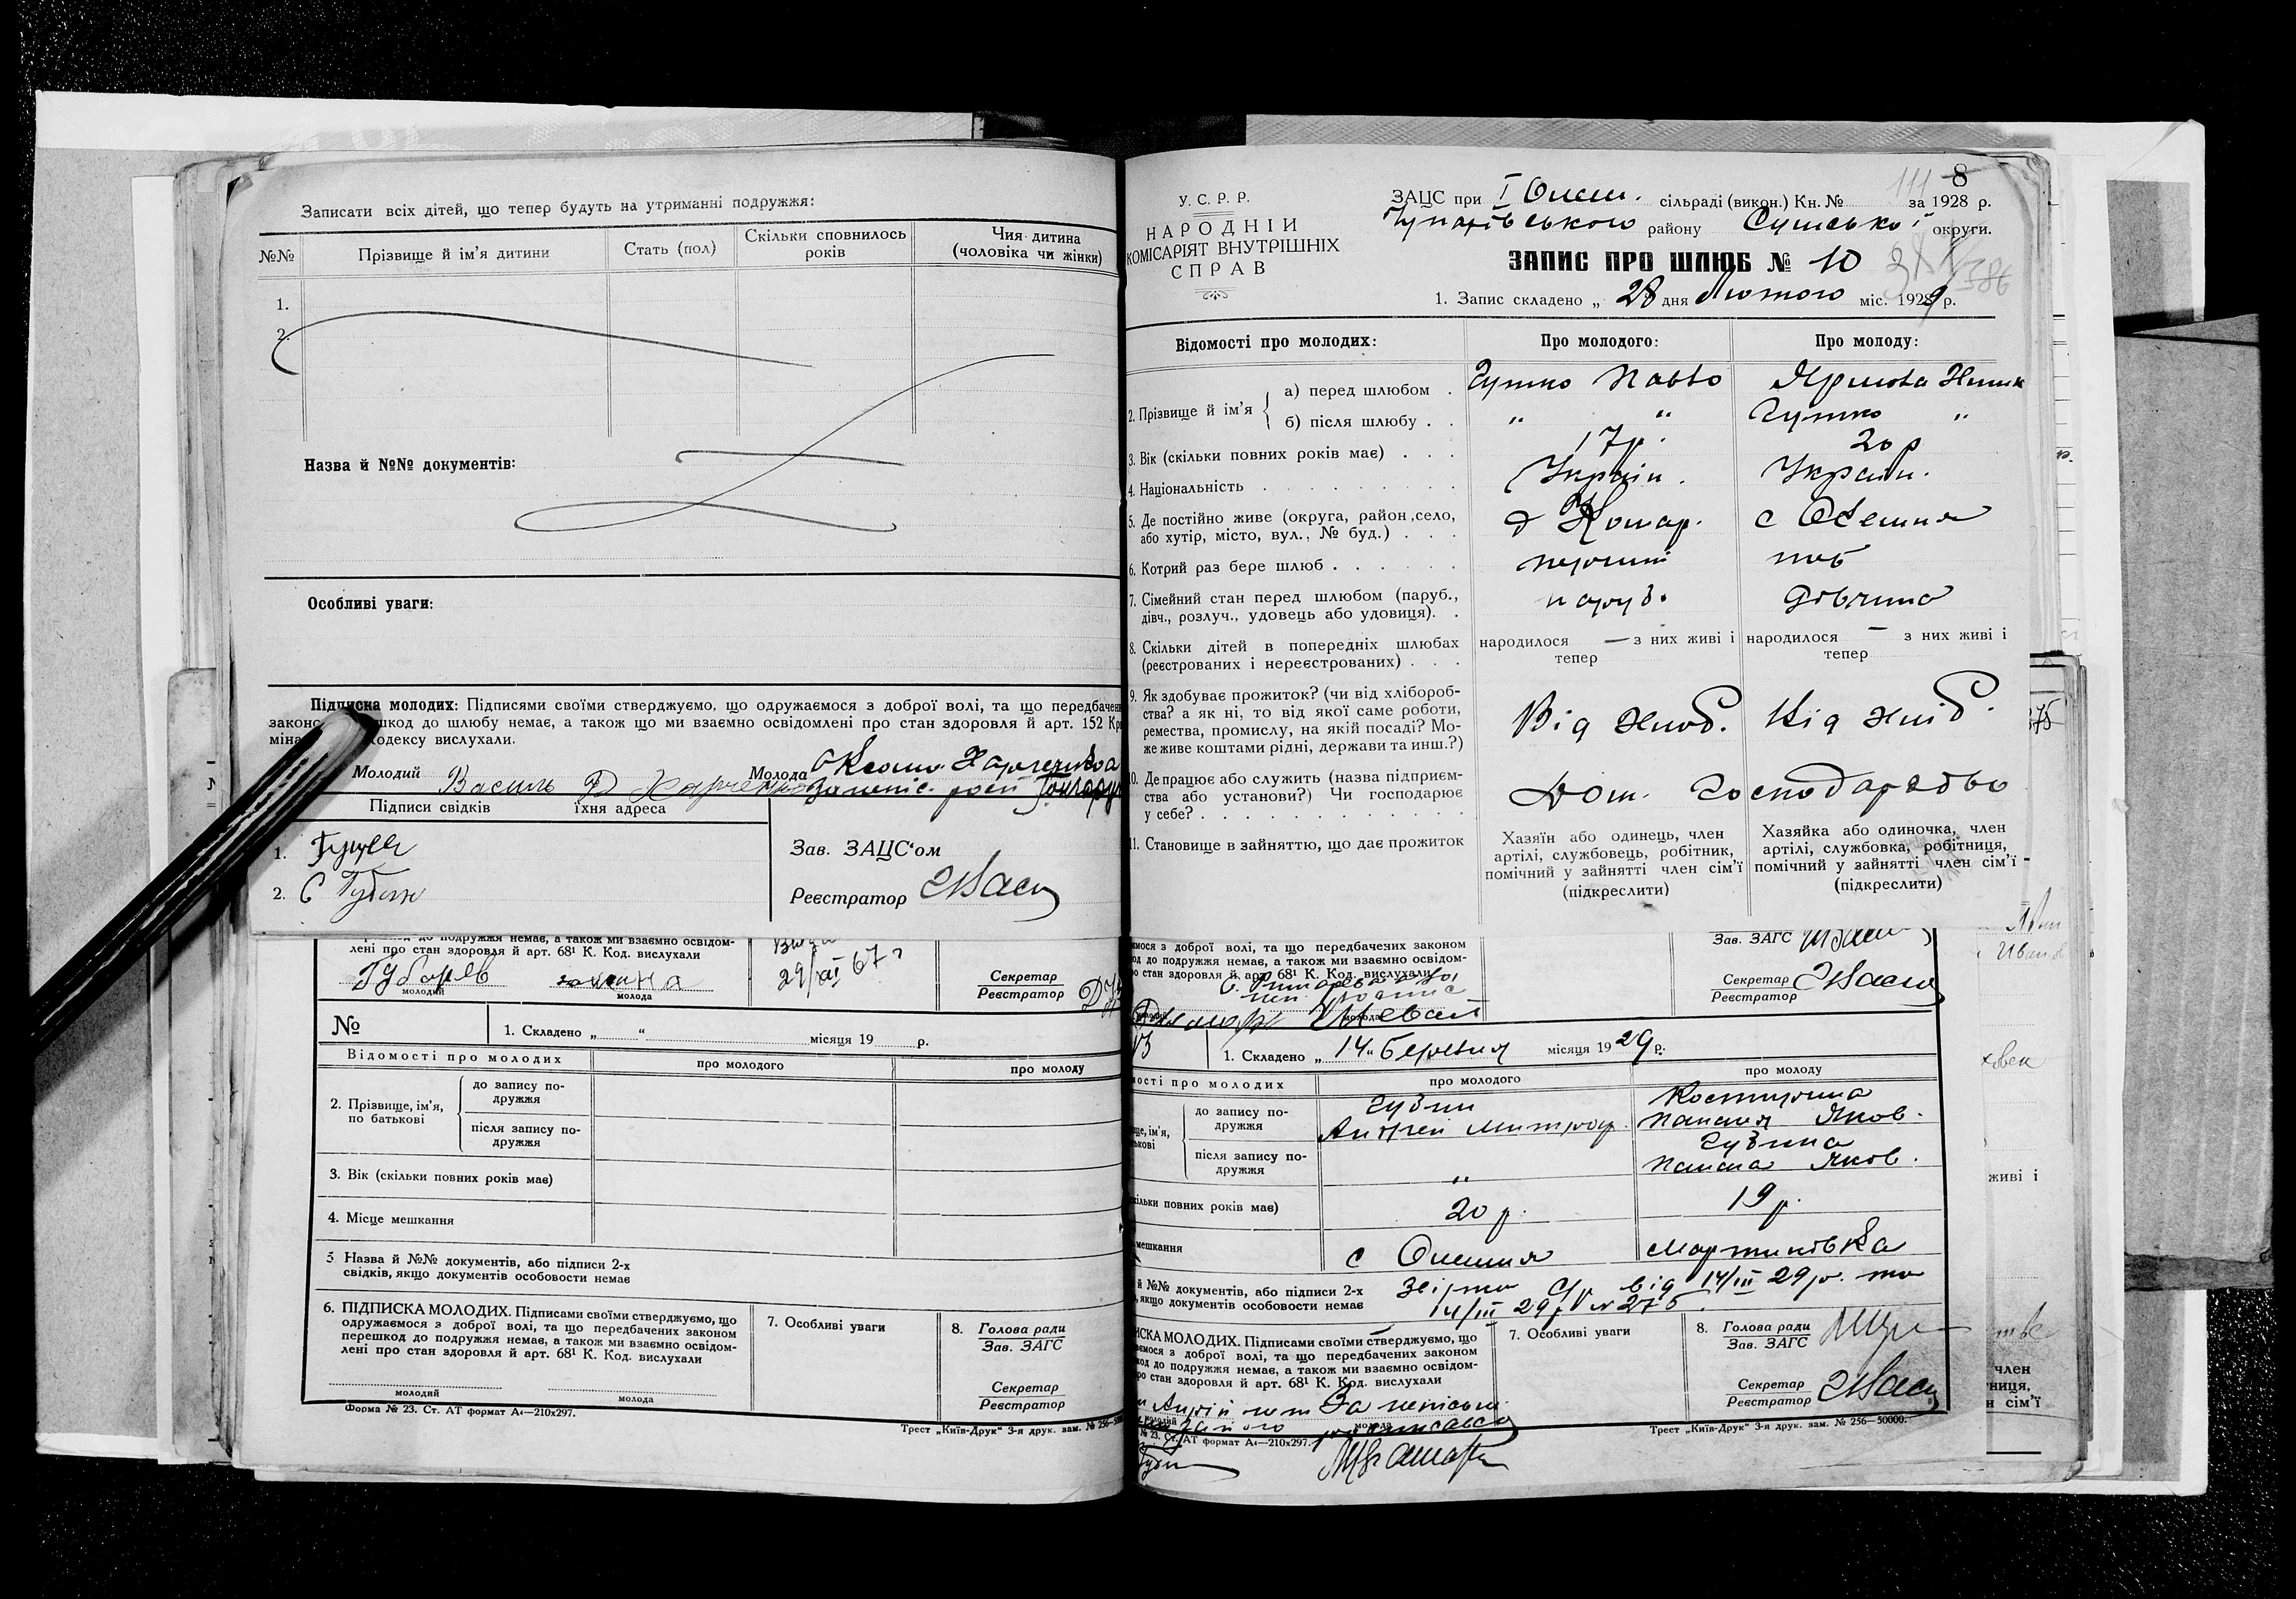 Записати всіх дітей, що тепер будуть на утриманні подружжя:
№№ Прізвище й ім'я дитини Стать (пол) Скільки сповнилось років Чия дитина (чоловіка чи жінки)
1.
2.
Назва й №№ документів:
Особливі уваги:
Підписка молодих: Підписями своїми стверджуємо, що одружаємося з доброї волі, та що
шкод до шлюбу немає, а також що ми взаємно освідомлені про стан здоровля й арт. 152
вислухали.
Молодий Василь Молода
Підписи свідків їхня адреса
1.
2. С
Зав. ЗАЦС'ом
Реєстратор
лені про стан здоровля й арт. 68¹ К. Код. вислухали
молодий молода
29/XI 67 г
Секретар
Реєстратор
№ 1. Складено „ “ місяця 19 р.
Відомості про молодих про молодого про молоду
2. Прізвище, ім'я, по батькові
до запису подружжя
після запису подружжя
3. Вік (скільки повних років має)
4. Місце мешкання
5 Назва й №№ документів, або підписи 2-х
свідків, якщо документів особовости немає
6. ПІДПИСКА МОЛОДИХ. Підписами своїми стверджуємо, що
одружаємося з доброї волі, та що передбачених законом
перешкод до подружжя немає, а також ми взаємно освідом-
лені про стан здоровля й арт. 68¹ К. Код. вислухали
молодий молода
7. Особливі уваги
8. Голова ради
Зав. ЗАГС
Секретар
Реєстратор
Форма № 23. Ст. АТ формат А4—210х297.
Трест „Київ-Друк“ 3-я друк. зам. № 256—
111 8
У. С. Р. Р.
НАРОДНІЙ
КОМІСАРІЯТ ВНУТРІШНІХ
СПРАВ
ЗАЦС при I Олеш. сільраді (викон.) Кн. № за 1928 р.
району Сумської округи.
ЗАПИС ПРО ШЛЮБ № 10
386
1. Запис складено „ 28 дня Лютого міс. 1929 р.
Відомості про молодих: Про молодого: Про молоду:
2. Прізвище й ім'я
а) перед шлюбом . Гутко Павло
б) після шлюбу . . „ “ Гутко „
3. Вік (скільки повних років має) . . . 17 р. 20 р
4. Національність Україн. Україн.
5. Де постійно живе (округа, район, село,
або хутір, місто, вул., № буд.) . . . с Олешня
6. Котрий раз бере шлюб . . . . . . перший
7. Сімейний стан перед шлюбом (паруб.,
дівч., розлуч., удовець або удовиця). . паруб. Дівчина
8. Скільки дітей в попередніх шлюбах
(реєстрованих і нереєстрованих) . . .
народилося — з них живі і тепер
народилося — з них живі і тепер
9. Як здобуває прожиток? (чи від хлібороб-
ства? а як ні, то від якої саме роботи,
ремества, промислу, на якій посаді? Мо-
же живе коштами рідні, держави та инш.?)
Від хліб. Від хліб.
10. Де працює або служить (назва підприєм-
ства або установи?) Чи господарює
у себе?
Дом. Господарство
11. Становище в зайняттю, що дає прожиток
Хазяїн або одинець, член
артілі, службовець, робітник,
помічний у зайнятті член сім'ї
(підкреслити)
Хазяйка або одиночка, член
артілі, службовка, робітниця,
помічний у зайнятті член сім'ї
(підкреслити)
з доброї волі, та що передбачених законом
до подружжя немає, а також ми взаємно освідом-
стан здоровля й арт. 68¹ К. Код. вислухали
Зав. ЗАГС
Секретар
Реєстратор
13 1. Складено „ 14 “ Березня місяця 1929 р.
про молодих про молодого про молоду
до запису подружжя Губин Андрей Митроф. Костирина Яков.
після запису подружжя „ Губина Яков.
повних років має) 20 р. 19 р.
мешкання с Олешня Мартинівка
й №№ документів, або підписи 2-х
якщо документів особовости немає
с/р від 14/III 29 р. та
14/III 29 р № 275
МОЛОДИХ. Підписами своїми стверджуємо, що
з доброї волі, та що передбачених законом
до подружжя немає, а також ми взаємно освідом-
стан здоровля й арт. 68¹ К. Код. вислухали
молода
7. Особливі уваги
8. Голова ради
Зав. ЗАГС
Секретар
Реєстратор
№ 23. Ст. АТ формат А4—210х297.
Трест „Київ-Друк“ 3-я друк. зам. № 256—50000.
живі і
член
сім'ї